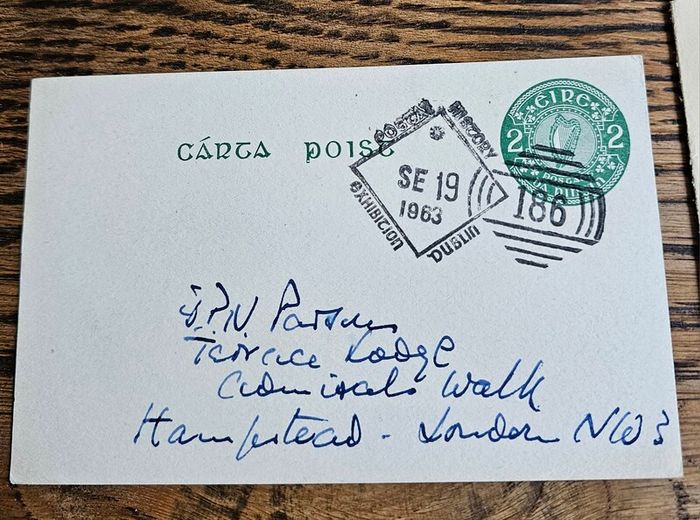 CÁRTA POIST
ÉIRE
2 2
POSTAL HISTORY
EXHIBITION DUBLIN
SE 19
1963
186
Parsons
Terrace Lodge
Admirals Walk
Hampstead - London NW3